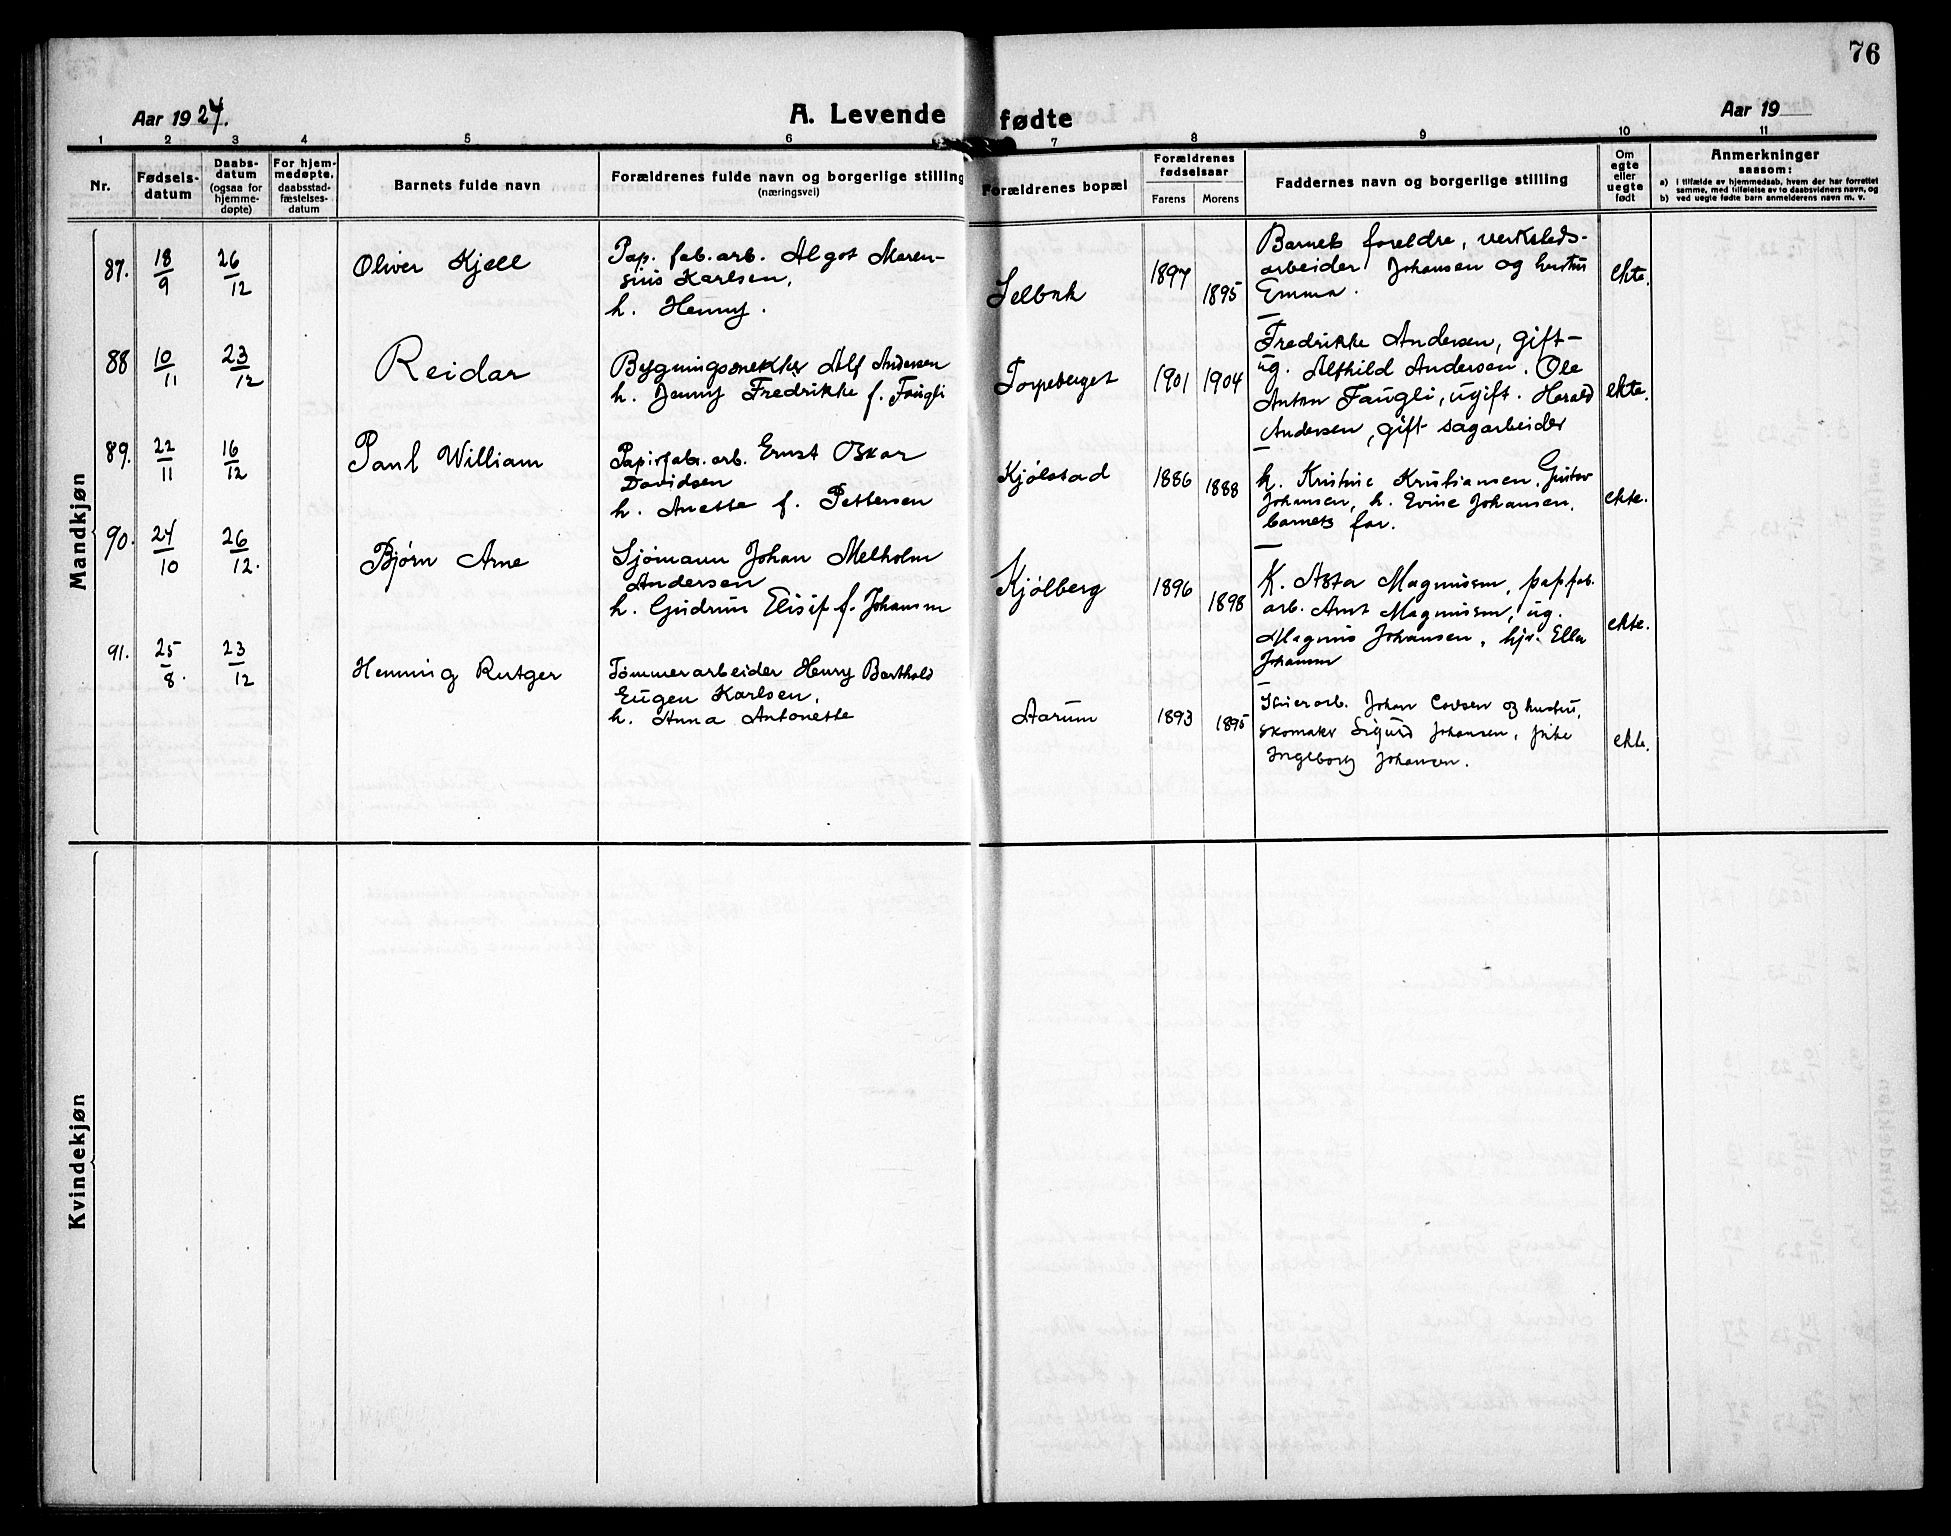 76
Aar 1924.
A. Levende fødte
Aar 19
1 2 3 4 5 6 7 8 9 10 11
Nr.
Fødsels-
datum
Daabs-
datum
(ogsaa for
hjemme-
døpte)
For hjem-
medøpte,
daabsstad-
fæstelses-
datum
Barnets fulde navn
Forældrenes fulde navn og borgerlige stilling
(næringsvei)
Forældrenes bopæl
Forældrenes
fødselsaar
Farens Morens
Faddernes navn og borgerlige stilling
Om
egte
eller
uegte
født
Anmerkninger
saasom:
a) i tilfælde av hjemmedaab, hvem der har forrettet
samme, med tilføielse av to daabsvidners navn, og
b) ved uegte fødte barn anmelderens navn m. v.
Mandkjøn
87. 18/9 26/12
Oliver Kjell
Pap. fab. arb. Algot Maren-
sius Karlsen,
h. Henny.
Selbak
1897 1895
Barnets foreldre, verksteds-
arbeider Johansen og hustru
Emma.
ekte.
88 10/11 23/12
Reidar
Bygningssnekker Alf Andersen
h. Jenny Fredrikke f. Faugli
Torpeberget
1901 1904
Fredrikke Andersen, gift-
ug. Alfhild Andersen. Ole
Anton Faugli, ugift. Harald
Andersen, gift sagarbeider
ekte.
89. 22/11 16/12
Paul William
Papirfabr. arb. Ernst Oskar
Davidsen
h. Anette f. Pettersen
Kjölstad
1886 1888
h. Kristine Kristiansen, Gustav
Johansen, h. Evine Johansen,
barnets far.
ekte.
90. 24/10 26/12.
Bjørn Arne
Sjömann Johan Melholm
Andersen
h. Gudrun Elisif f. Johansen
Kjölberg
1896 1898
K. Asta Magnussen, papfab.
arb. Arnt Magnussen, ug.
Magnus Johansen, hjv. Ella
Johansen
ekte.
91. 25/8. 23/12
Henning Rutger
Tömmerarbeider Henry Barthold
Eugen Karlsen,
h. Anna Antonette
Aarum
1893 1895
Johan Carlsen og hustru,
skomaker Sigurd Johansen, frk.
Ingeborg Johansen.
ekte.
Kvindekjøn